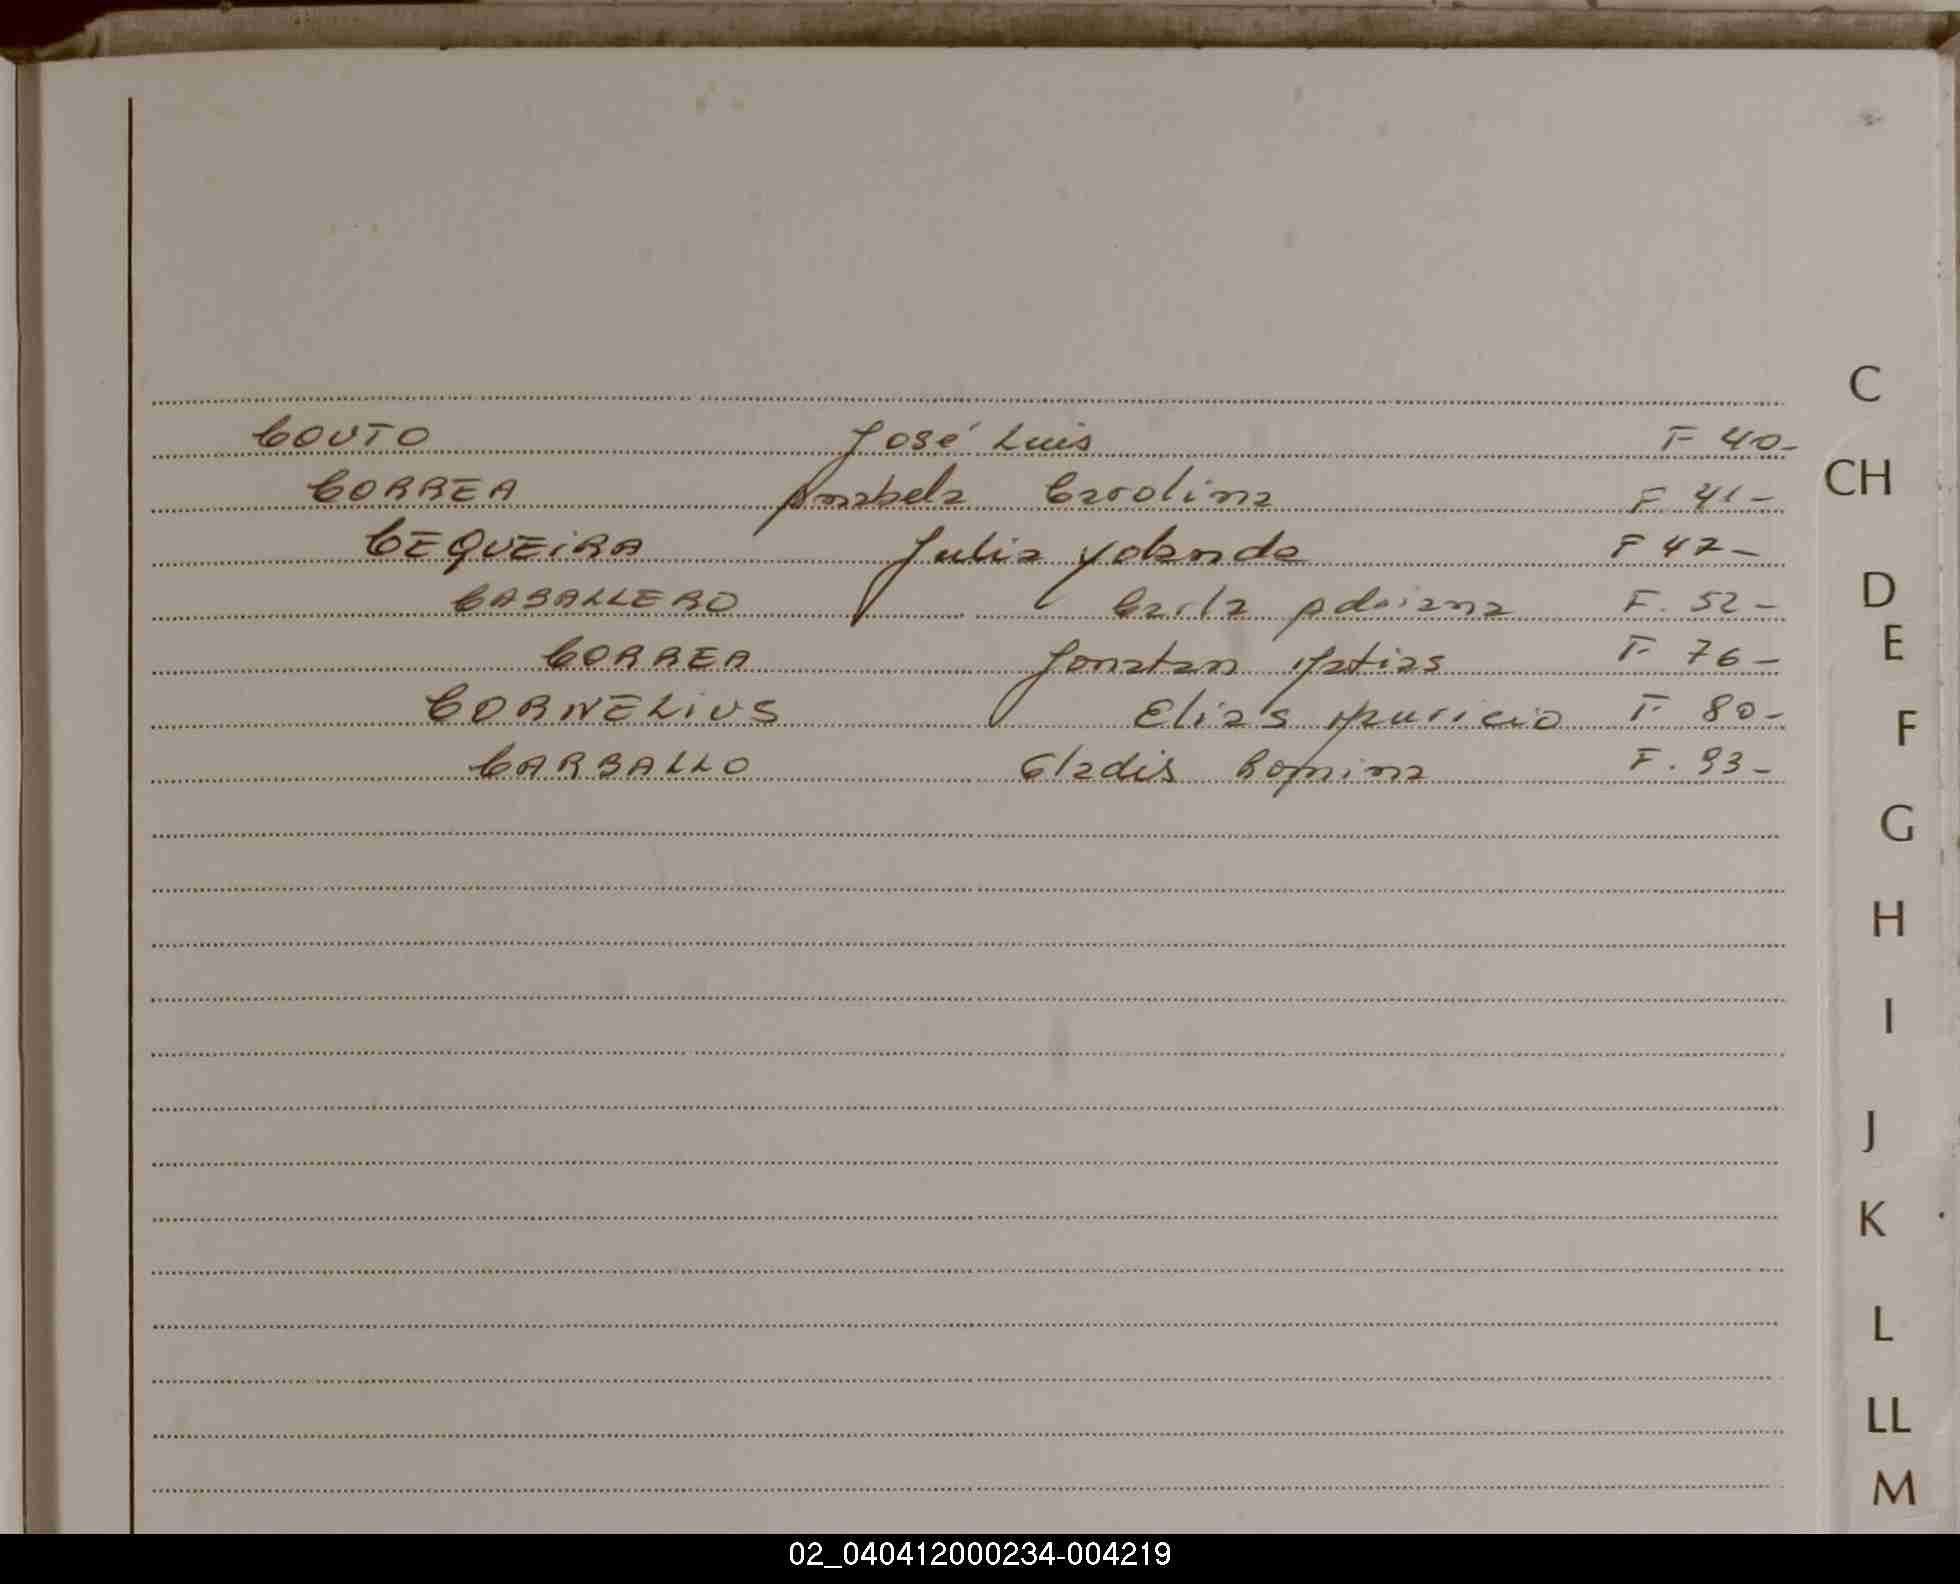 COUTO José Luis F 40-
CORREA Anabela Carolina F 41-
CEQUEiRA Julia Yolanda F 42-
CABALLERO Carla Adriana F. 52-
CORREA Jonatan Matias F 76-
CORNELiUS Elias Mauricio F 80-
CARBALLO Gladis Romina F. 93-
C
CH
D
E
F
G
H
I
J
K
L
LL
M
02_040412000234-004219